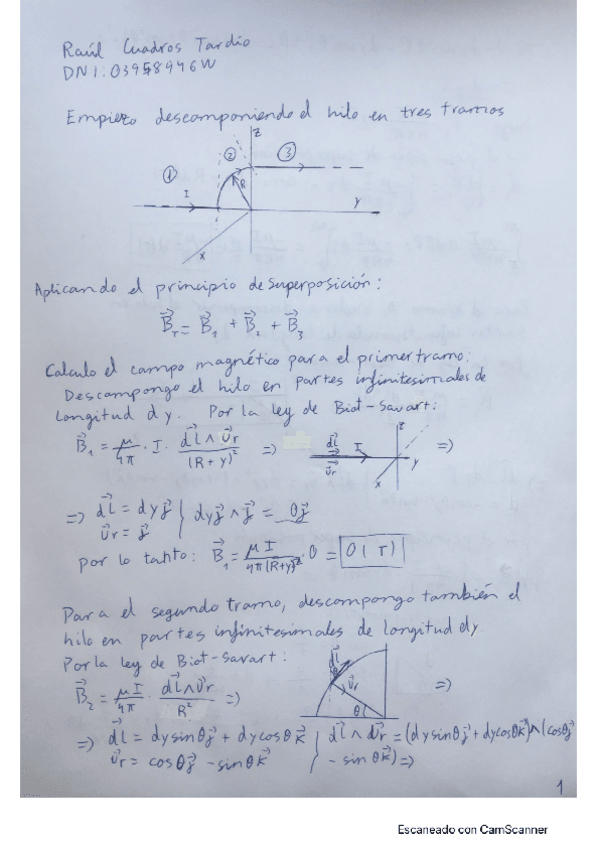 Raúl Cuadros Tardío
DNI: 03958946W
Empiezo descomponiendo el hilo en tres tramos
z
② ③
①
R
I
y
x
Aplicando el principio de superposición:
B⃗_T = B⃗_1 + B⃗_2 + B⃗_3
Calculo el campo magnético para el primer tramo:
Descompongo el hilo en partes infinitesimales de
longitud dy. Por la ley de Biot-Savart:
B⃗_1 = μ/4π · I · (dl⃗ ∧ u⃗r)/(R+y)² => dl⃗ I z =>
u⃗r y
x
=> dl⃗ = dy j⃗ } dy j⃗ ∧ j⃗ = 0 j⃗
u⃗r = j⃗
por lo tanto: B⃗_1 = μI/4π(R+y)² · 0 = 0(T)
Para el segundo tramo, descompongo también el
hilo en partes infinitesimales de longitud dy
Por la ley de Biot-Savart: dl⃗
B⃗_2 = μI/4π · (dl⃗ ∧ u⃗r)/R² => θ u⃗r θ =>
=> dl⃗ = dy senθ j⃗ + dy cosθ k⃗ } dl⃗ ∧ u⃗r = (dy sinθ j⃗ + dy cosθ k⃗) ∧ (cosθ j⃗
u⃗r = cosθ j⃗ - sinθ k⃗ - sin θ k⃗) =>
1
Escaneado con CamScanner